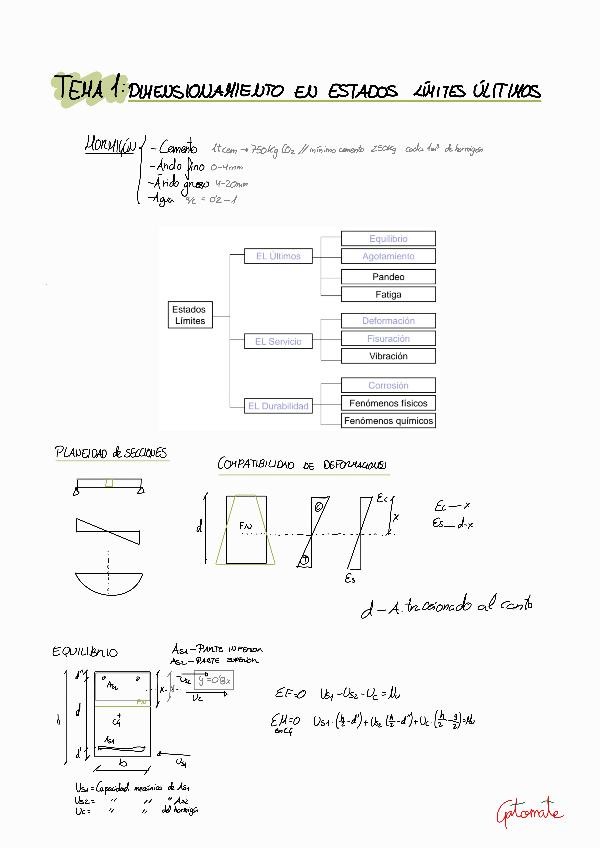 TEMA 1: DIMENSIONAMIENTO EN ESTADOS LÍMITES ÚLTIMOS
HORMIGÓN
- Cemento 1t cem → 750kg CO2 // mínimo cemento 250kg cada 1m³ de hormigón
- Árido fino 0-4mm
- Árido grueso 4-20mm
- Agua a/c = 0'2-1
Estados Límites
EL Últimos
Equilibrio
Agotamiento
Pandeo
Fatiga
EL Servicio
Deformación
Fisuración
Vibración
EL Durabilidad
Corrosión
Fenómenos físicos
Fenómenos químicos
PLANEIDAD de SECCIONES
COMPATIBILIDAD DE DEFORMACIONES
d
FN
C
T
Ec
x
Es
Ec — x
Es — d-x
d - A. traccionado al canto
EQUILIBRIO
As1 - PARTE INFERIOR
As2 - PARTE SUPERIOR
h
d''
d
d'
As2
FN
As1
b
x
Us2
y = 0'8x
Uc
Us1
ΣF=0 Us1 - Us2 - Uc = Nu
ΣM=0 Us1·(h/2 - d') + Us2·(h/2 - d'') + Uc·(h/2 - y/2) = Mu
en CG
Us1 = Capacidad mecánica de As1
Us2 = " " " As2
Uc = " " del hormigón
Gptomate